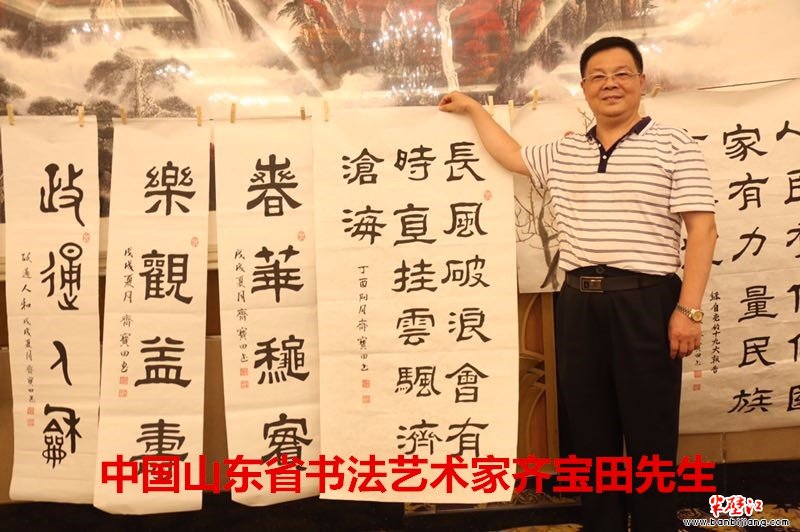 家有力量民族
長風破浪會有
時直挂雲颿濟
滄海
丁酉阳月齊寳田书
春華穐實
戊戌夏月 齊寳田书
樂觀益壽
戊戌夏月 齊寳田书
政通人龢
政通人和 戊戌夏月 齊寳田书
中国山东省书法艺术家齐宝田先生
半壁江
www.banbijiang.com